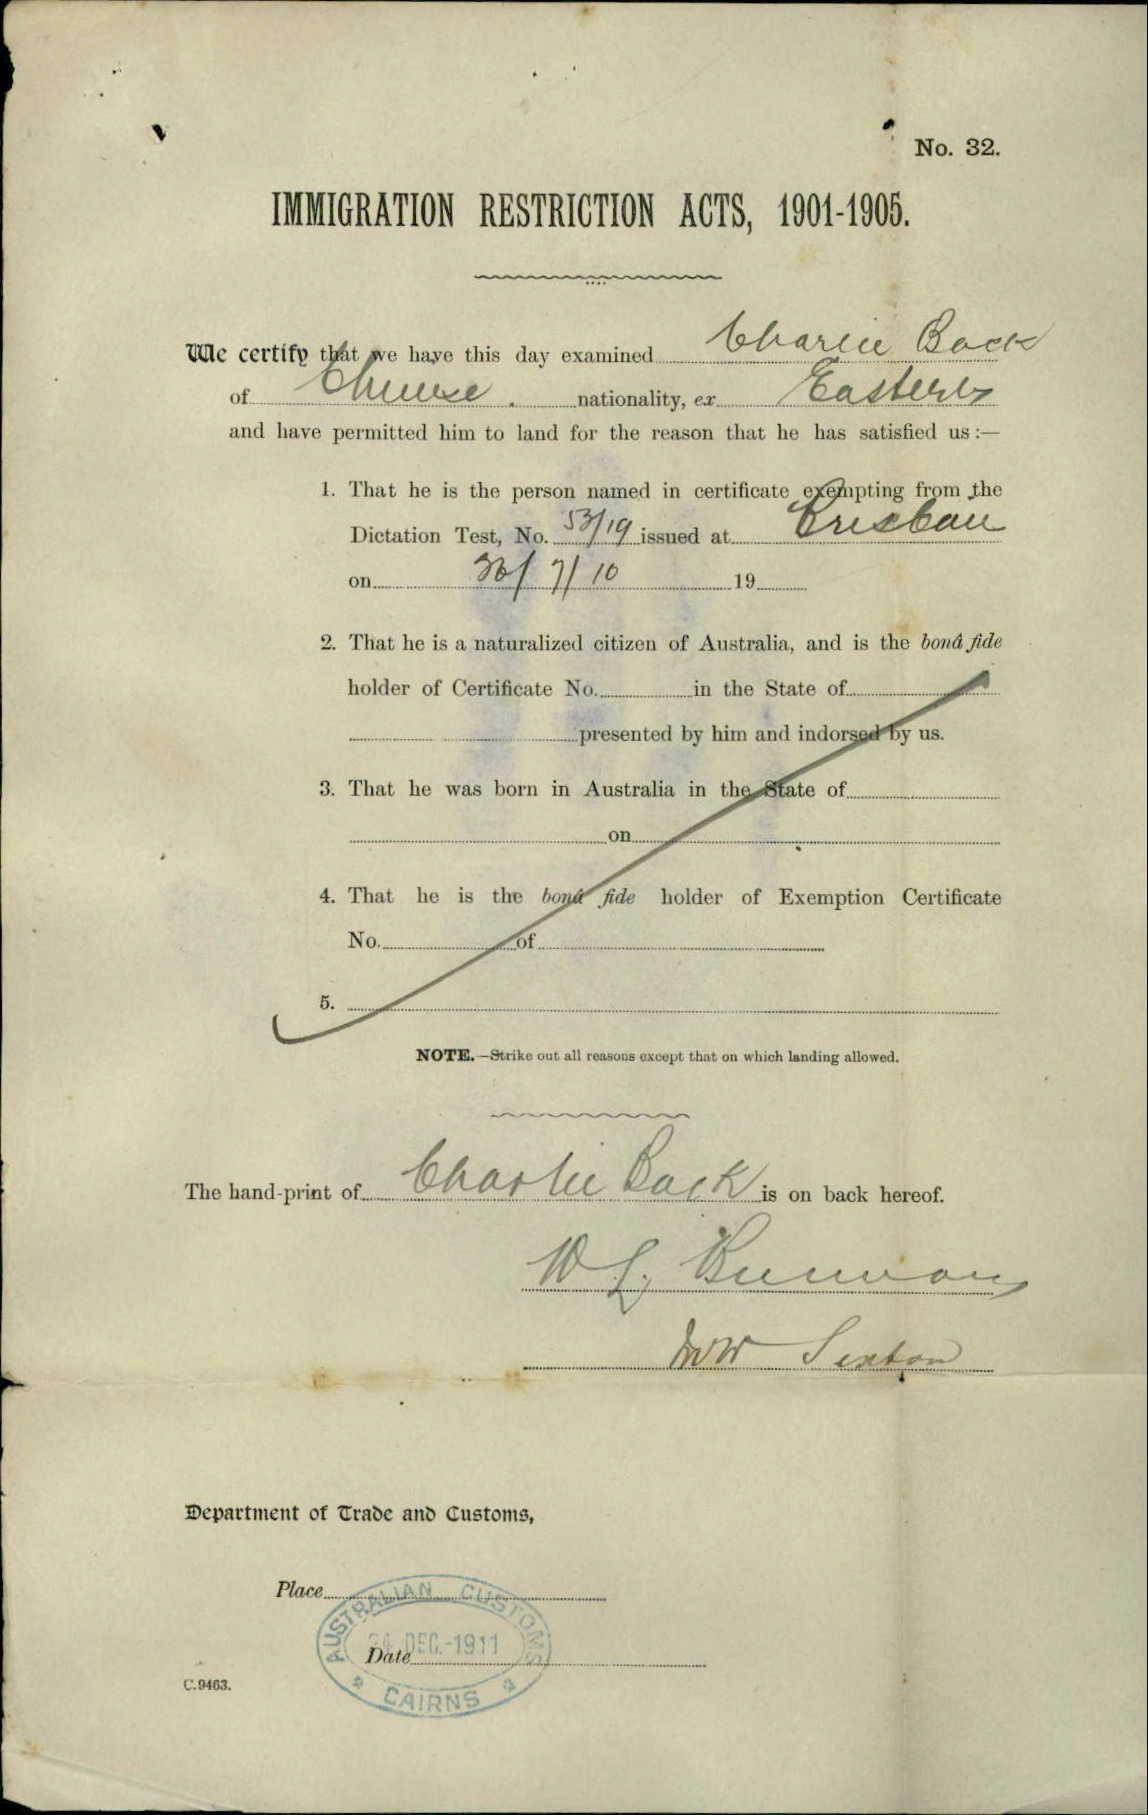 No. 32.
IMMIGRATION RESTRICTION ACTS, 1901-1905.
We certify that we have this day examined Charlie Bock
of Chinese nationality, ex Eastern
and have permitted him to land for the reason that he has satisfied us :—
1. That he is the person named in certificate exempting from the
Dictation Test, No. 53/19 issued at Brisbane
on 7/10 19
2. That he is a naturalized citizen of Australia, and is the bonâ fide
holder of Certificate No. in the State of
presented by him and indorsed by us.
3. That he was born in Australia in the State of
on
4. That he is the bonâ fide holder of Exemption Certificate
No. of
5.
NOTE.—Strike out all reasons except that on which landing allowed.
The hand-print of Charlie Bock is on back hereof.
W L
Sexton
Department of Trade and Customs,
Place
AUSTRALIAN CUSTOMS
DEC.-1911
Date
CAIRNS
C.9463.